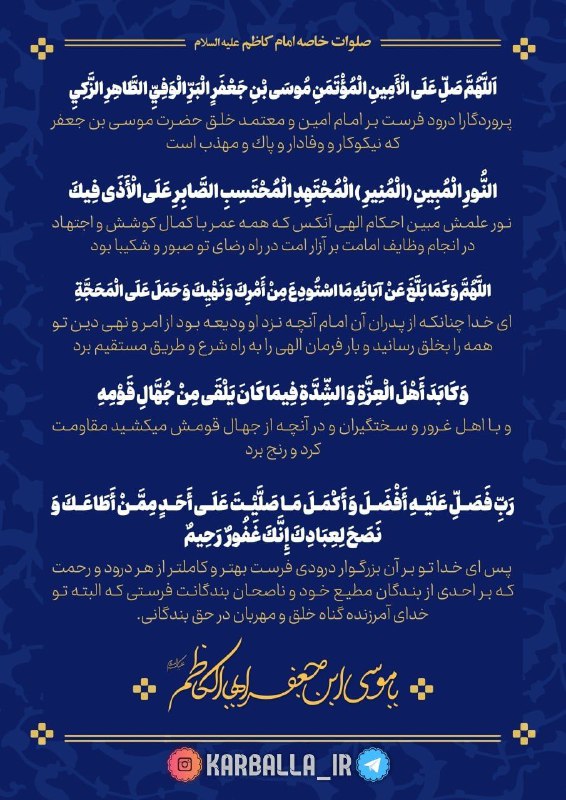 صلوات خاصه امام کاظم علیه السلام
اَللَّهُمَّ صَلِّ عَلَى الْأَمِينِ الْمُؤْتَمَنِ مُوسَى بْنِ جَعْفَرٍ الْبَرِّ الْوَفِيِّ الطَّاهِرِ الزَّكِيِ
پروردگارا درود فرست بر امام امین و معتمد خلق حضرت موسی بن جعفر
که نیکوکار و وفادار و پاك و مهذب است
النُّورِ الْمُبِينِ (الْمُنِيرِ) الْمُجْتَهِدِ الْمُحْتَسِبِ الصَّابِرِ عَلَى الْأَذَى فِيكَ
نور علمش مبین احکام الهی آنکس که همه عمر با کمال کوشش و اجتهاد
در انجام وظایف امامت بر آزار امت در راه رضای تو صبور و شکیبا بود
اللَّهُمَّ وَ كَمَا بَلَّغَ عَنْ آبَائِهِ مَا اسْتُودِعَ مِنْ أَمْرِكَ وَ نَهْيِكَ وَ حَمَلَ عَلَى الْمَحَجَّةِ
ای خدا چنانکه از پدران آن امام آنچه نزد او ودیعه بود از امر و نهی دین تو
همه را بخلق رسانید و بار فرمان الهی را به راه شرع و طریق مستقیم برد
وَ كَابَدَ أَهْلَ الْعِزَّةِ وَ الشِّدَّةِ فِيمَا كَانَ يَلْقَى مِنْ جُهَّالِ قَوْمِهِ
و با اهل غرور و سختگیران و در آنچه از جهال قومش میکشید مقاومت
کرد و رنج برد
رَبِّ فَصَلِّ عَلَيْهِ أَفْضَلَ وَ أَكْمَلَ مَا صَلَّيْتَ عَلَى أَحَدٍ مِمَّنْ أَطَاعَكَ وَ
نَصَحَ لِعِبَادِكَ إِنَّكَ غَفُورٌ رَحِيمٌ
پس ای خدا تو بر آن بزرگوار درودی فرست بهتر و کاملتر از هر درود و رحمت
که بر احدی از بندگان مطیع خود و ناصحان بندگانت فرستی که البته تو
خدای آمرزنده گناه خلق و مهربان در حق بندگانی.
یا موسی ابن جعفر ایها الکاظم علیه السلام
KARBALLA_IR